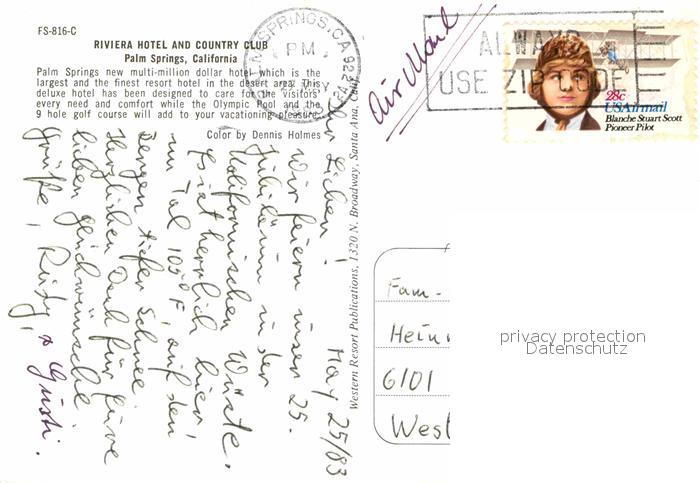 FS-816-C
RIVIERA HOTEL AND COUNTRY CLUB
Palm Springs, California
Palm Springs new multi-million dollar hotel which is the
largest and the finest resort hotel in the desert area. This
deluxe hotel has been designed to care for the visitors'
every need and comfort while the Olympic Pool and the
9 hole golf course will add to your vacationing pleasure.
Color by Dennis Holmes
Western Resort Publications, 1320 N. Broadway, Santa Ana, Calif.
PALM SPRINGS, CA 922
PM
ALWAYS
USE ZIP CODE
Air Mail
28c
USAirmail
Blanche Stuart Scott
Pioneer Pilot
May 25/83
Ihr Lieben!
Wir feiern unser 25.
Jubiläum in der
Kalifornischen Wüste.
Es ist herrlich hier,
im Tal 105°F auf den
Bergen tiefer Schnee.
Herzlichen Dank für Eure
lieben Geschwünsche.
Grüße, Rudy, + Gusti.
Fam.
Hein
6101
West
privacy protection
Datenschutz